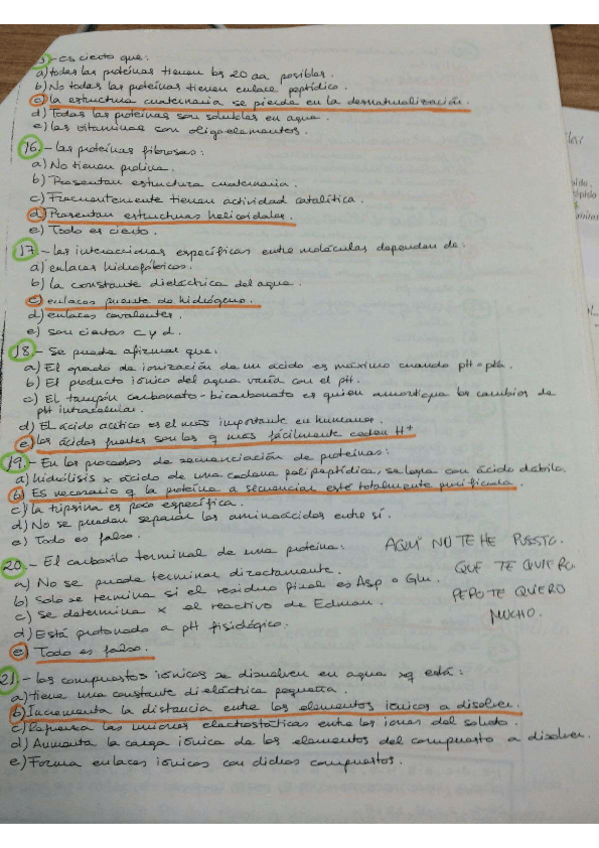 5.- es cierto que:
a) todas las proteínas tienen los 20 aa posibles.
b) No todas las proteínas tienen enlace peptídico.
c) la estructura cuaternaria se pierde en la desnaturalización.
d) Todas las proteínas son solubles en agua.
e) las vitaminas son oligoelementos.
16.- las proteínas fibrosas:
a) No tienen prolina.
b) Presentan estructura cuaternaria.
c) Frecuentemente tienen actividad catalítica.
d) Presentan estructuras helicoidales.
e) Todo es cierto.
17.- las interacciones específicas entre moléculas dependen de:
a) enlaces hidrofóbicos.
b) la constante dieléctrica del agua.
c) enlaces puente de hidrógeno.
d) enlaces covalentes.
e) son ciertas c y d.
18.- Se puede afirmar que:
a) El grado de ionización de un ácido es máximo cuando pH = pka.
b) El producto iónico del agua varía con el pH.
c) El tampón carbonato-bicarbonato es quien amortigua los cambios de
pH intracelular.
d) El ácido acético es el más importante en humanos.
e) los ácidos fuertes son los q más fácilmente ceden H+
19.- En los procesos de secuenciación de proteínas:
a) hidrólisis x ácido de una cadena polipeptídica, se logra con ácido débil.
b) Es necesario q la proteína a secuenciar esté totalmente purificada.
c) la tripsina es poco específica.
d) No se pueden separar los aminoácidos entre sí.
e) Todo es falso.
20.- El carboxilo terminal de una proteína:
a) No se puede terminar directamente.
b) Solo se termina si el residuo final es Asp o Glu.
c) Se determina x el reactivo de Edman.
d) Está protonado a pH fisiológico.
e) Todo es falso.
AQUÍ NO TE HE PUESTO
QUE TE QUIERO.
PERO TE QUIERO
MUCHO.
21.- los compuestos iónicos se disuelven en agua xq está:
a) tiene una constante dieléctrica pequeña.
b) Incrementa la distancia entre los elementos iónicos a disolver.
c) Refuerza las uniones electrostáticas entre los iones del soluto.
d) Aumenta la carga iónica de los elementos del compuesto a disolver.
e) Forma enlaces iónicos con dichos compuestos.